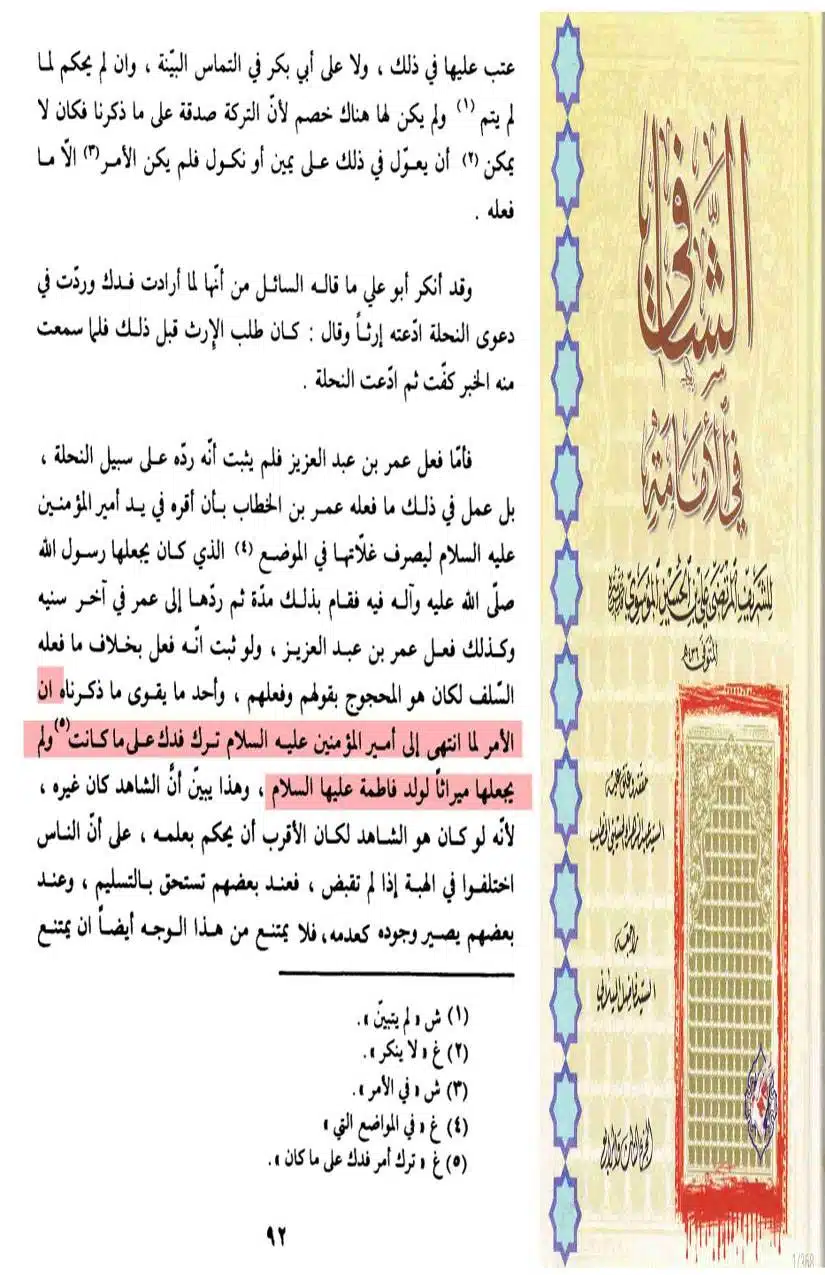 عتب عليها في ذلك ، ولا على أبي بكر في التماس البيّنة ، وان لم يحكم لما
لم يتم (١) ولم يكن لها هناك خصم لأنّ التركة صدقة على ما ذكرنا فكان لا
يمكن (٢) أن يعوّل في ذلك على يمين أو نكول فلم يكن الأمر (٣) الّا ما
فعله .
وقد أنكر أبو علي ما قاله السائل من أنّها لما أرادت فدك وردّت في
دعوى النحلة ادّعته إرثاً وقال : كان طلب الإرث قبل ذلك فلما سمعت
منه الخبر كفّت ثم ادّعت النحلة .
فأمّا فعل عمر بن عبد العزيز فلم يثبت أنّه ردّه على سبيل النحلة ،
بل عمل في ذلك ما فعله عمر بن الخطاب بأن أقره في يد أمير المؤمنين
عليه السلام ليصرف غلّاتها في الموضع (٤) الذي كان يجعلها رسول الله
صلّى الله عليه وآله فيه فقام بذلك مدّة ثم ردّها إلى عمر في آخر سنيه
وكذلك فعل عمر بن عبد العزيز ، ولو ثبت انّه فعل بخلاف ما فعله
السّلف لكان هو المحجوج بقولهم وفعلهم ، وأحد ما يقوى ما ذكرناه ان
الأمر لما انتهى إلى أمير المؤمنين عليه السلام ترك فدك على ما كانت (٥) ولم
يجعلها ميراثاً لولد فاطمة عليها السلام ، وهذا يبينّ أنَّ الشاهد كان غيره ،
لأنّه لو كان هو الشاهد لكان الأقرب أن يحكم بعلمه ، على أنّ الناس
اختلفوا في الهبة إذا لم تقبض ، فعند بعضهم تستحق بالتسليم ، وعند
بعضهم يصير وجوده كعدمه ، فلا يمتنع من هذا الوجه أيضاً ان يمتنع
(١) ش « لم يتبينّ ».
(٢) غ « لا ينكر ».
(٣) ش « في الأمر ».
(٤) غ « في المواضع التي »
(٥) غ « ترك أمر فدك على ما كان ».
٩٢
الشّافي
في الأمامة
للشريف المرتضى علي بن الحسين الموسوي
المتوفى ٤٣٦هـ
حققه وعلق عليه
السيد عبد الزهراء الحسيني الخطيب
راجعه
السيد فاضل الميلاني
1/368